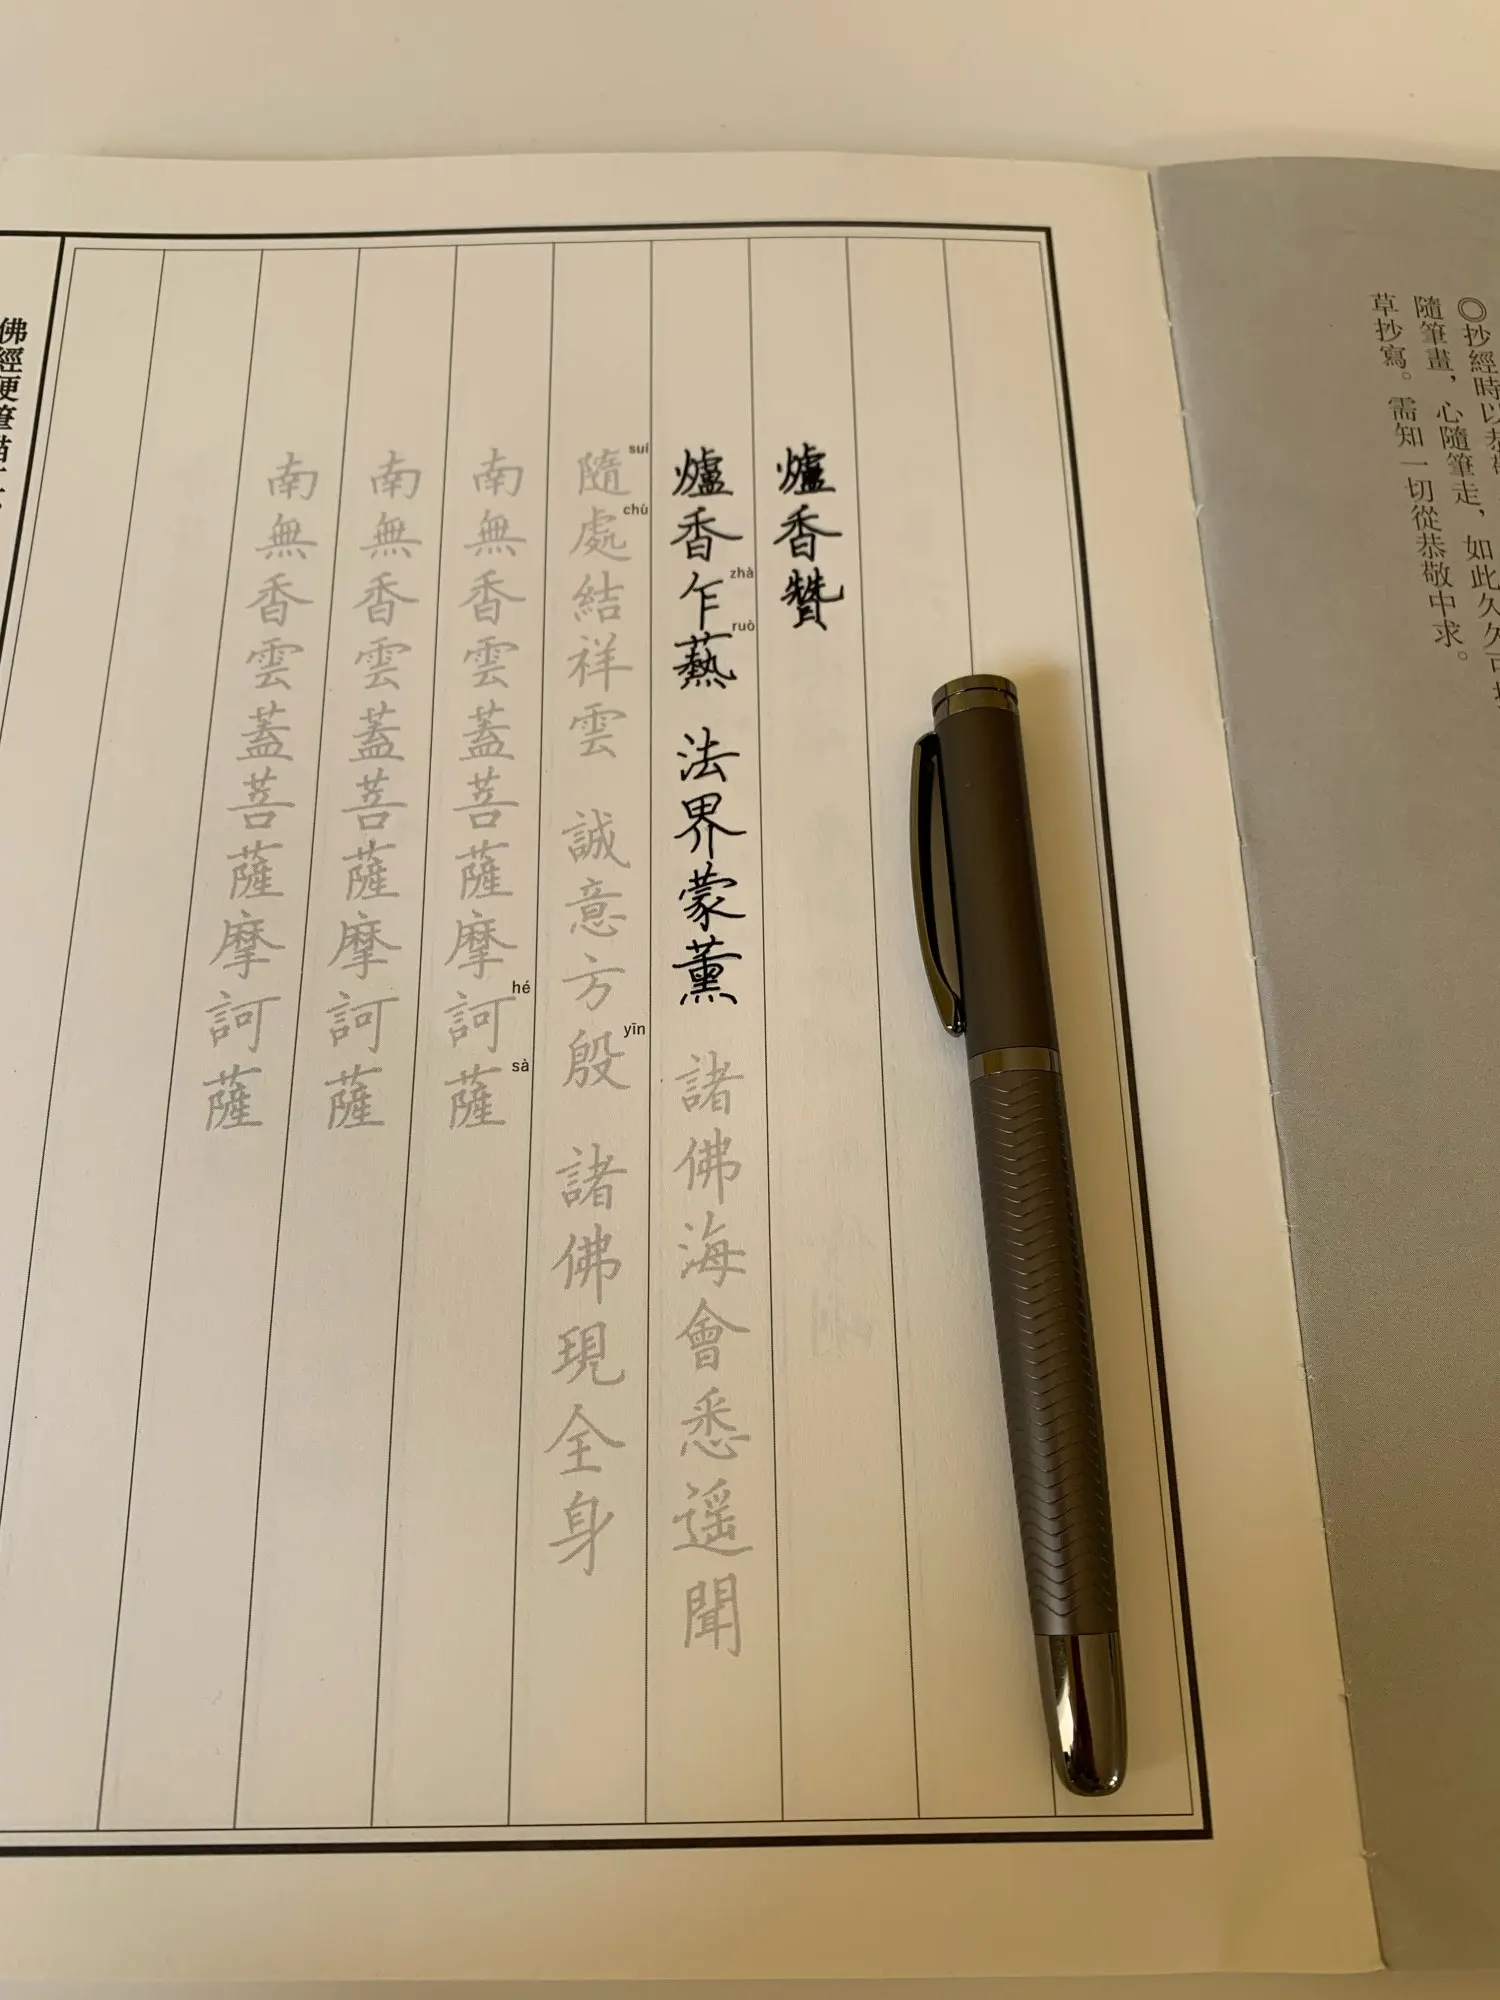 ◎抄經時以恭敬
隨筆畫，心隨筆走，如此久久可
草抄寫。需知一切從恭敬中求。
爐香贊
爐香乍爇 法界蒙薰 諸佛海會悉遥聞
zhà
ruò
隨處結祥雲 誠意方殷 諸佛現全身
suí
chù
yīn
南無香雲蓋菩薩摩訶薩
hé
sà
南無香雲蓋菩薩摩訶薩
南無香雲蓋菩薩摩訶薩
佛經硬筆描